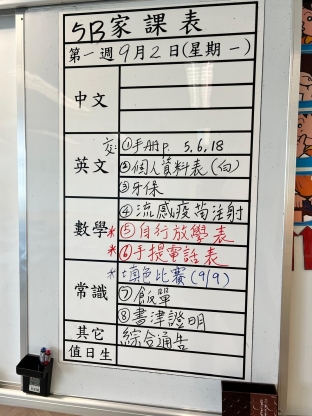 5B家課表
第一週9月2日(星期一)
中文
英文
交
①手册P. 5,6,18
②個人資料表(白)
③牙保
數學
④流感疫苗注射
*⑤自行放學表
*⑥手提電話表
常識
*填色比賽(9/9)
⑦飯單
⑧書津證明
其它
綜合通告
值日生